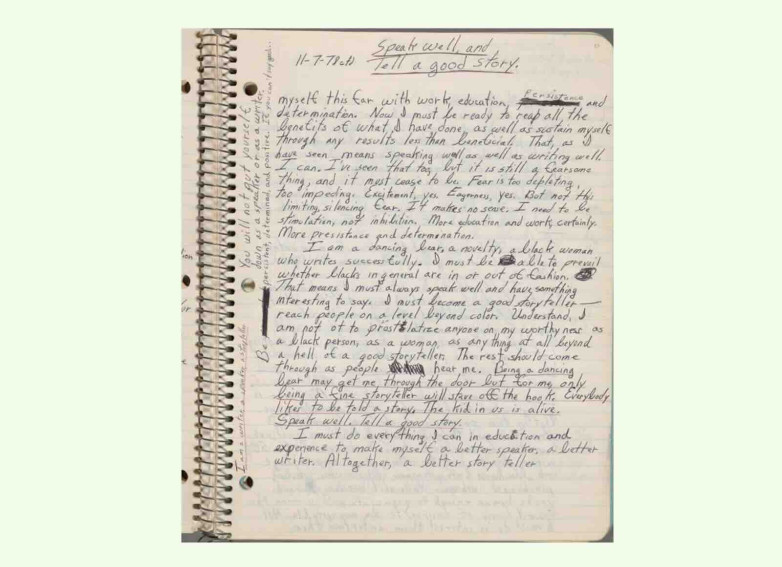 Speak well, and
11-7-78
Tell a good story.
myself this far with work, education, Persistance and
determination. Now I must be ready to reap all, the
benefits of what I have done, as well as sustain myself
through any results less than beneficial. That, as I
have seen means speaking well as well as writing well.
I can. I've seen that too, but it is still a fearsome
thing, and it must cease to be. Fear is too depleting,
too impeding. Excitement, yes. Eagerness, yes. But not this
limiting, silencing fear. It makes no sense. I need to be
stimulation, not inhibition. More education and work, certainly.
More presistence and determenation.
I am a dancing bear, a novelty, a black woman
who writes successfully. I must be able to prevail
whether blacks in general are in or out of fashion.
That means I must always speak well and have something
interesting to say. I must become a good storyteller—
reach people on a level beyond color. Understand, I
am not to anyone on my worthyness as
a black person, as a woman, as anything at all beyond
a hell of a good storyteller. The rest should come
through as people hear me. Being a dancing
bear may get me through the door but for me only
being a fine storyteller will stave off the hook. Everybody
likes to be told a story. The kid in us is alive.
Speak well. Tell a good story.
I must do everything I can in education and
experience to make myself a better speaker, a better
writer. Altogether, a better story teller
You will not put yourself
down as a speaker or as a writer.
Be persistent, determined, and positive. If you can't say
I am a write a